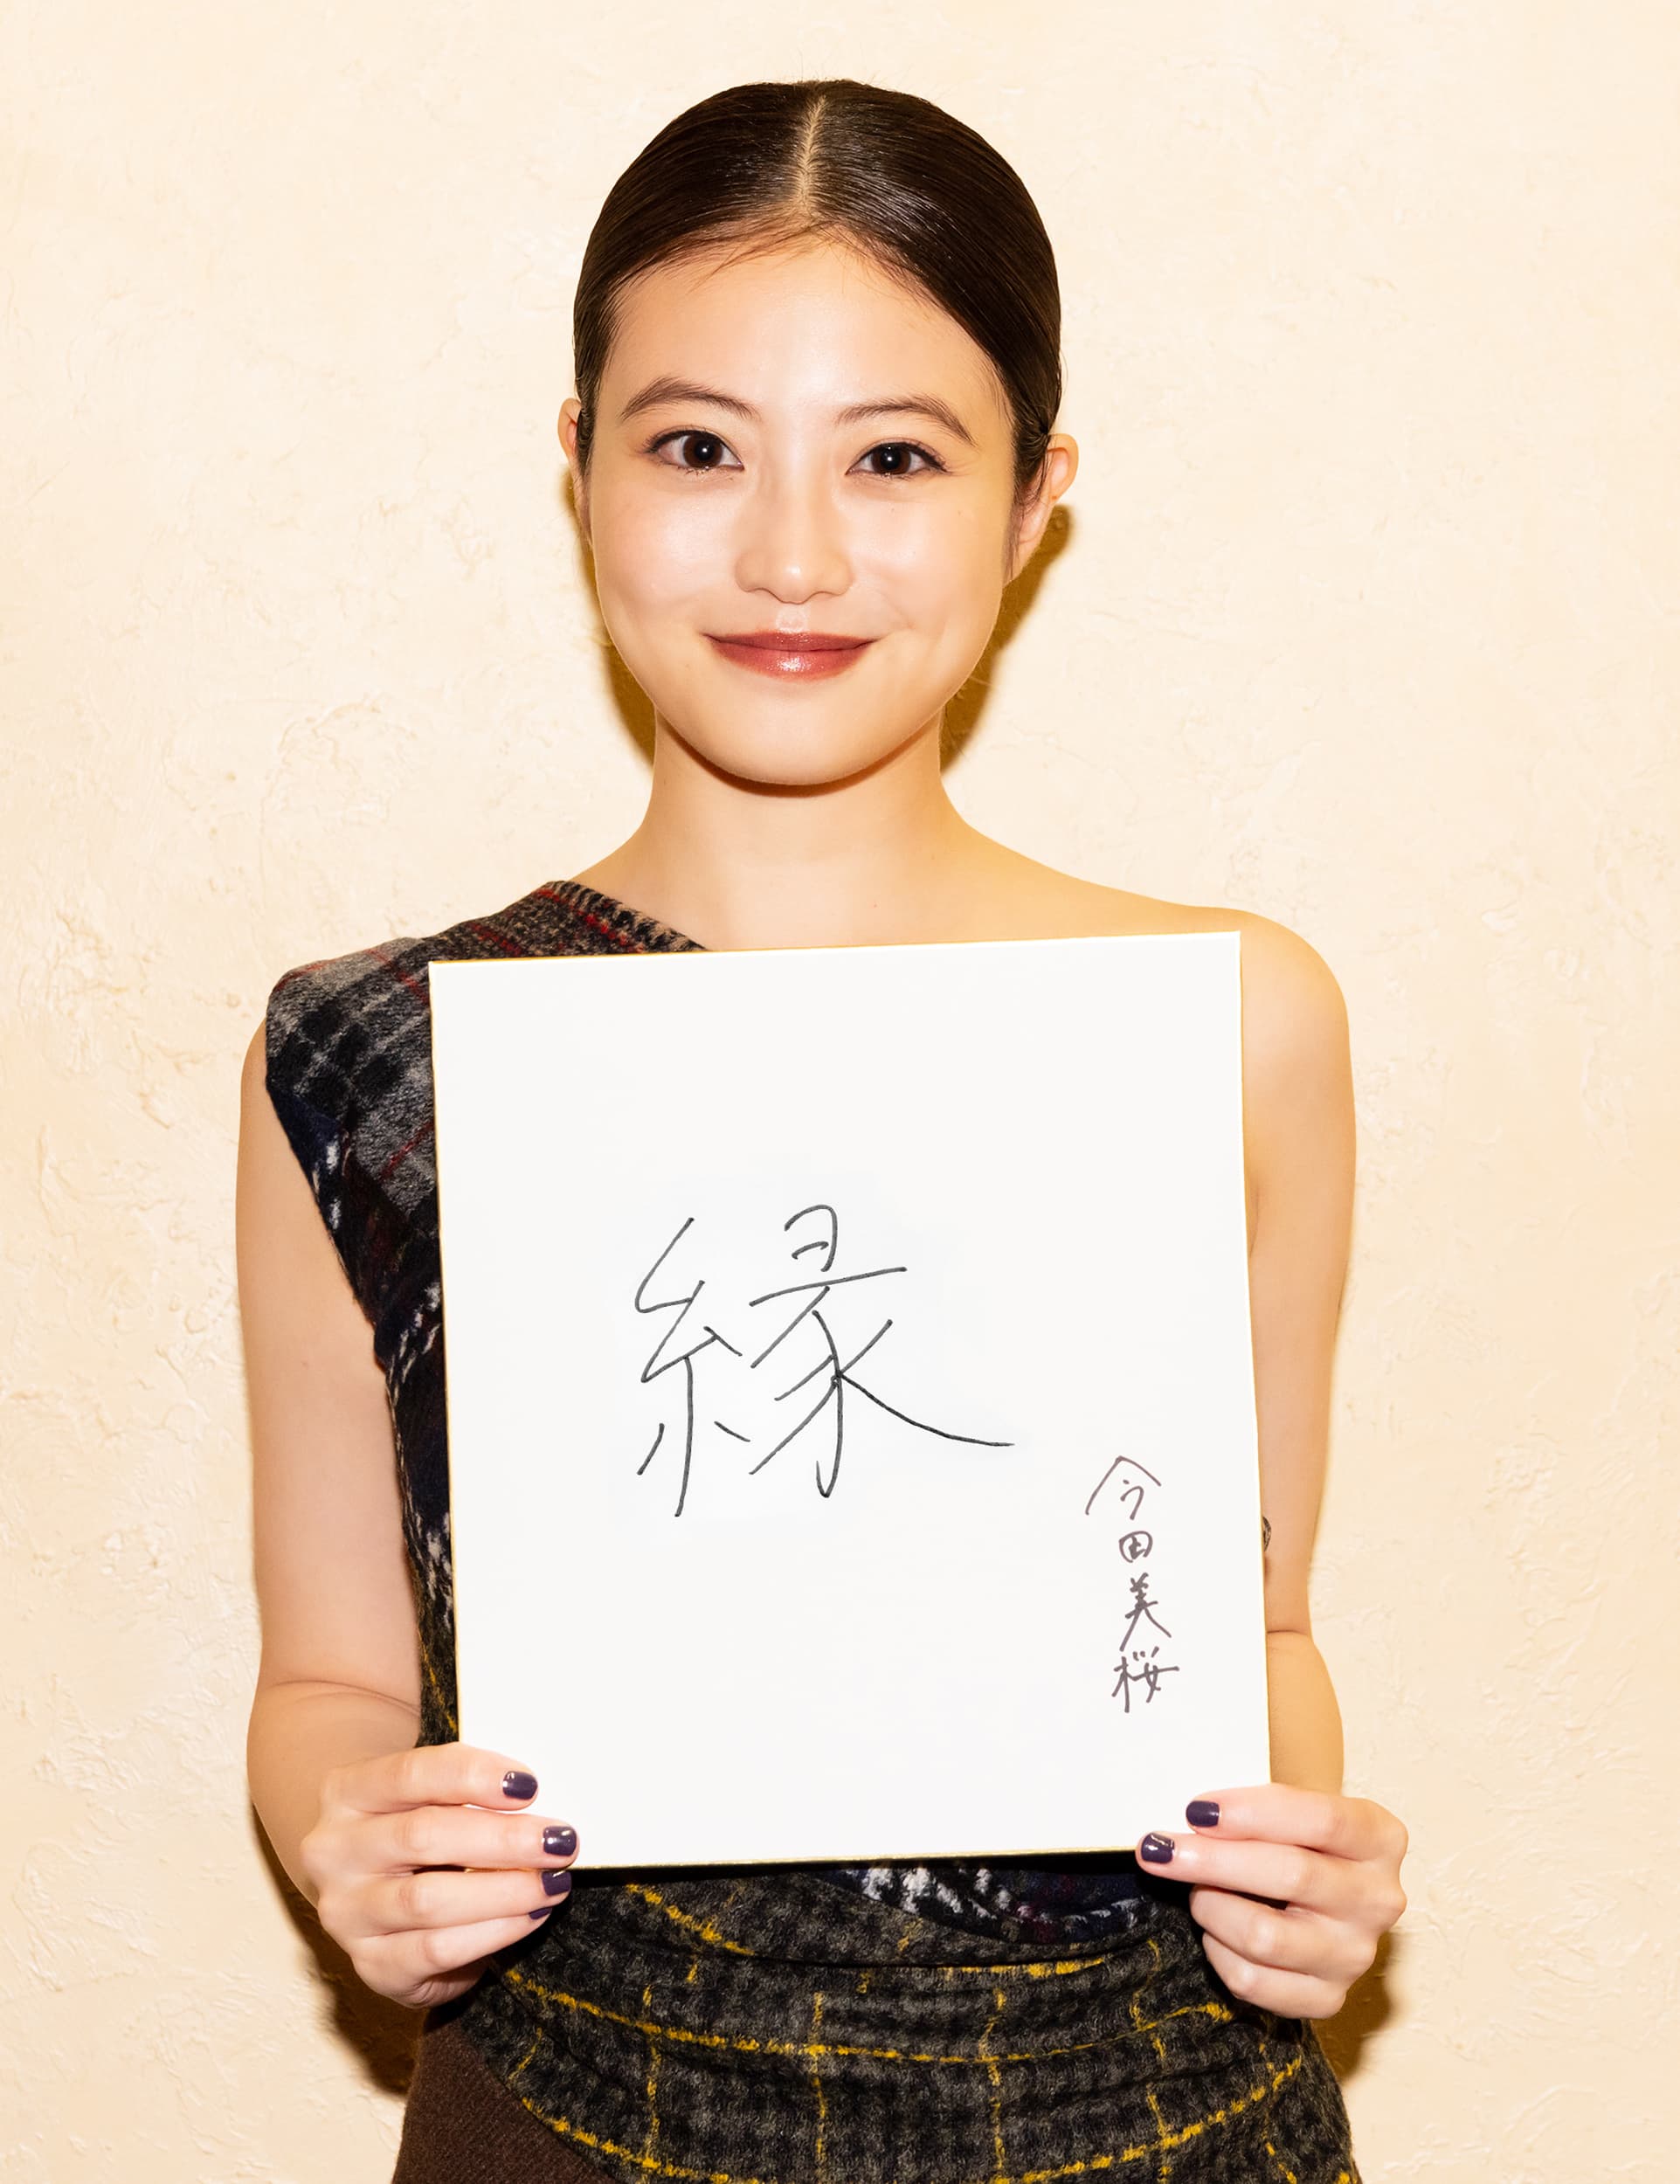 縁
今田美桜